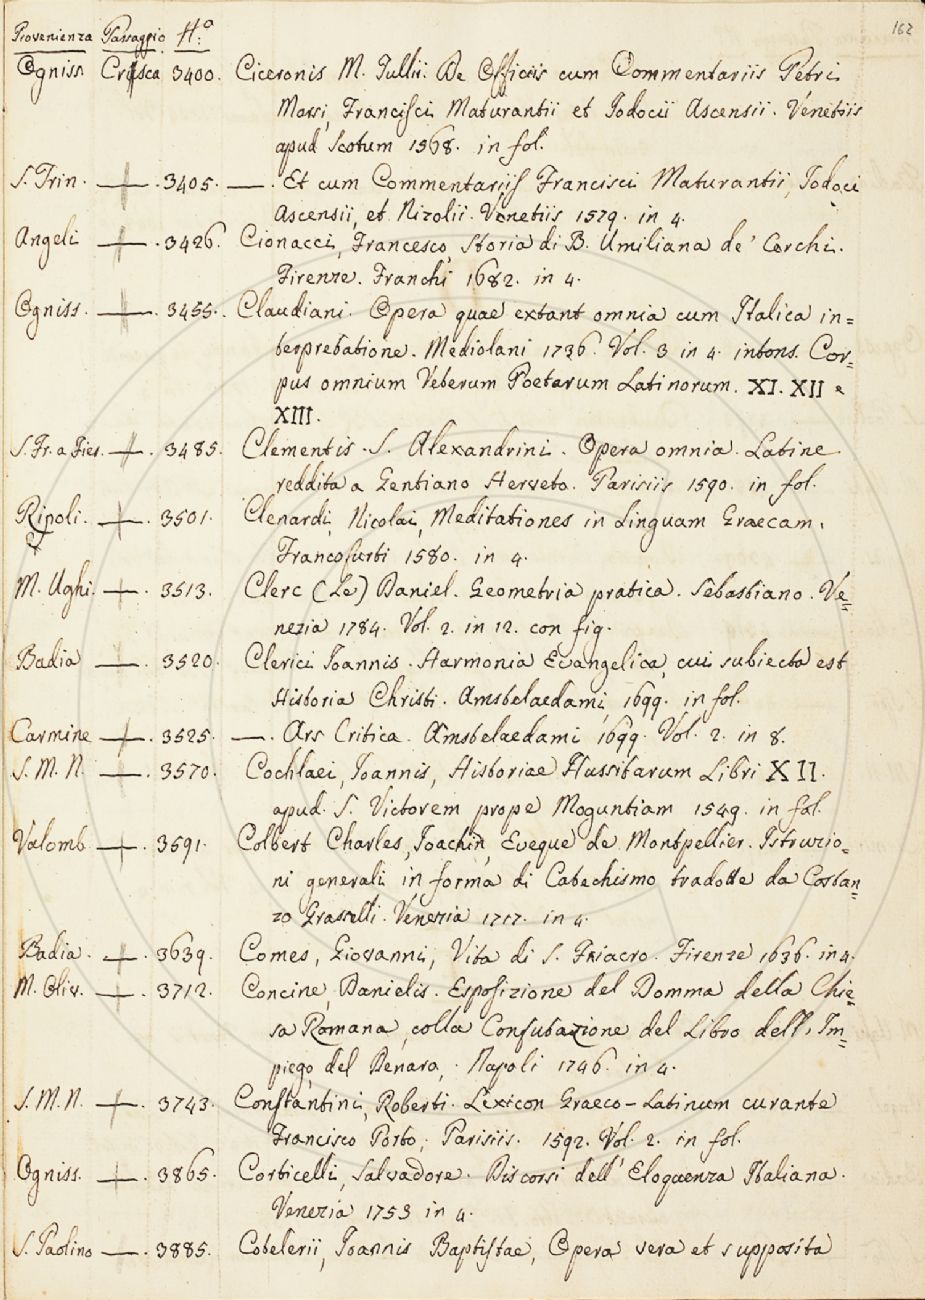 162
Provenienza Passaggio N.º
Ogniss Crusca 3400. Ciceronis M. Tullii. De Officiis cum Commentariis Petri
Marsi, Francisci Maturantii et Jodocii Ascensii. Venetiis
apud Scotum 1568. in fol.
S. Trin. — . 3405. — . Et cum Commentariis Francisci Maturantii, Jodoci
Ascensii, et Nizolii. Venetiis 1579. in 4.
Angeli — . 3426. Cionacci, Francesco, Storia di B. Umiliana de' Cerchi.
Firenze. Franchi 1682. in 4.
Ogniss. — . 3455. Claudiani. Opera quae extant omnia cum Italica in=
terpretatione. Mediolani 1736. Vol. 3 in 4. intons. Cor=
pus omnium Veterum Poetarum Latinorum. XI. XII e
XIII.
S. Fr. a Fies. — . 3485. Clementis . S. Alexandrini. Opera omnia. Latine
reddita a Gentiano Herveto. Parisiis 1590. in fol.
Ripoli. — . 3501. Clenardi, Nicolai, Meditationes in Linguam Graecam.
Francofurti 1580. in 4.
M. Ughi. — . 3513. Clerc (Le) Daniel. Geometria pratica. Sebastiano. Ve=
nezia 1784. Vol. 2. in 12. con fig.
Badia — . 3520. Clerici Joannis. Harmonia Evangelica, cui subiecta est
Historia Christi. Amstelaedami, 1699. in fol.
Carmine — . 3525. — . Ars Critica. Amstelaedami 1699. Vol. 2. in 8.
S. M. N. — . 3570. Cochlaei, Joannis, Historiae Hussitarum Libri XII.
apud. S. Victorem prope Moguntiam 1549. in fol.
Valomb — . 3591. Colbert Charles, Joachin, Eveque de Montpellier. Istruzio=
ni generali in forma di Catechismo tradotte da Costan=
zo Grasselli. Venezia 1717. in 4.
Badia. — . 3639. Comes, Giovanni, Vita di S. Friacro. Firenze 1636. in 4.
M. Oliv. — . 3712. Concine, Danielis. Esposizione del Domma della Chie=
sa Romana, colla Confutazione del Libro dell' Im=
piego del Denaro, . Napoli 1746. in 4.
S. M. N. — . 3743. Constantini, Roberti. Lexicon Graeco-Latinum curante
Francisco Porto, Parisiis. 1592. Vol. 2. in fol.
Ogniss. — . 3865. Corticelli, Salvadore. Discorsi dell' Eloquenza Italiana.
Venezia 1753 in 4.
S. Paolino — . 3885. Cotelerii, Joannis Baptistae, Opera vera et supposita